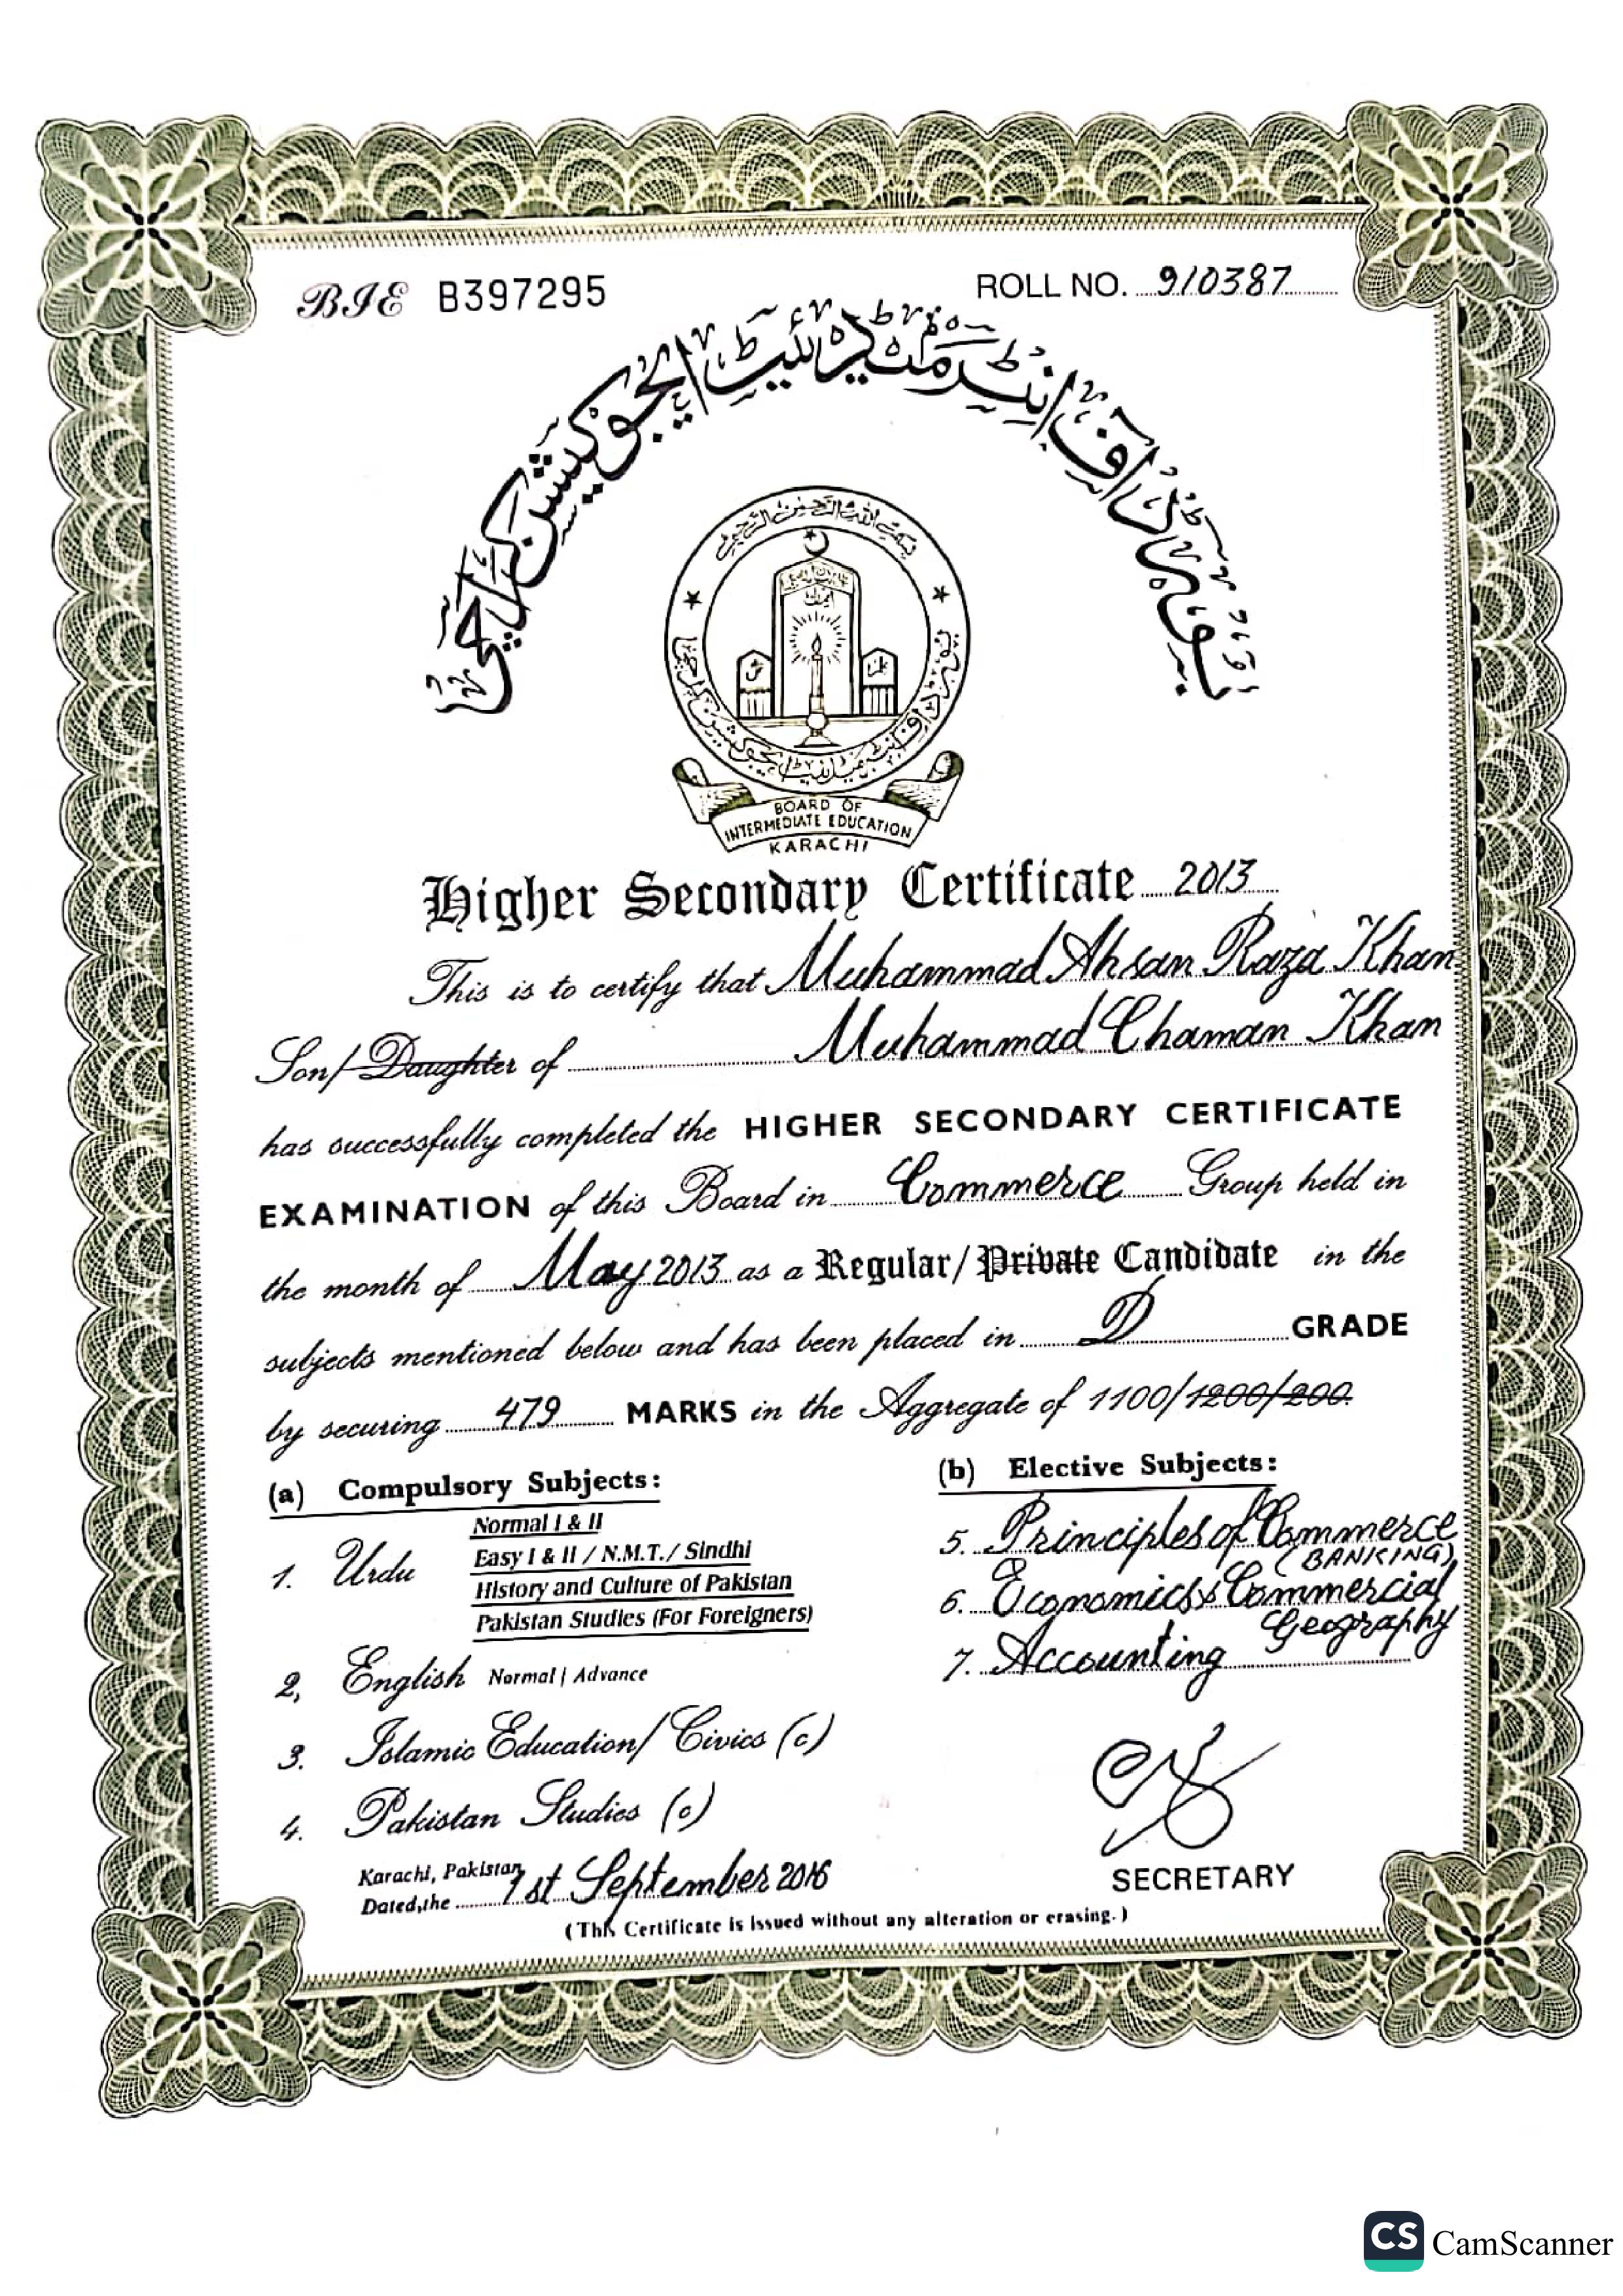 BIE B397295
ROLL NO. 910387
بورڈ آف انٹرمیڈیئٹ ایجوکیشن کراچی
بسم اللہ الرحمن الرحیم
بورڈ آف انٹرمیڈیئٹ ایجوکیشن کراچی
BOARD OF
INTERMEDIATE EDUCATION
KARACHI
Higher Secondary Certificate 2013
This is to certify that Muhammad Ahsan Raza Khan
Son/Daughter of Muhammad Chaman Khan
has successfully completed the HIGHER SECONDARY CERTIFICATE
EXAMINATION of this Board in Commerce Group held in
the month of May 2013 as a Regular/Private Candidate in the
subjects mentioned below and has been placed in D GRADE
by securing 479 MARKS in the Aggregate of 1100/1200/200.
(a) Compulsory Subjects:
1. Urdu
Normal I & II
Easy I & II / N.M.T./ Sindhi
History and Culture of Pakistan
Pakistan Studies (For Foreigners)
2, English Normal / Advance
3. Islamic Education/Civics (c)
4. Pakistan Studies (c)
(b) Elective Subjects:
5. Principles of Commerce
(BANKING)
6. Economics & Commercial
Geography
7. Accounting
SECRETARY
Karachi, Pakistan
Dated,the 1st September 2016
(This Certificate is issued without any alteration or erasing.)
CS CamScanner